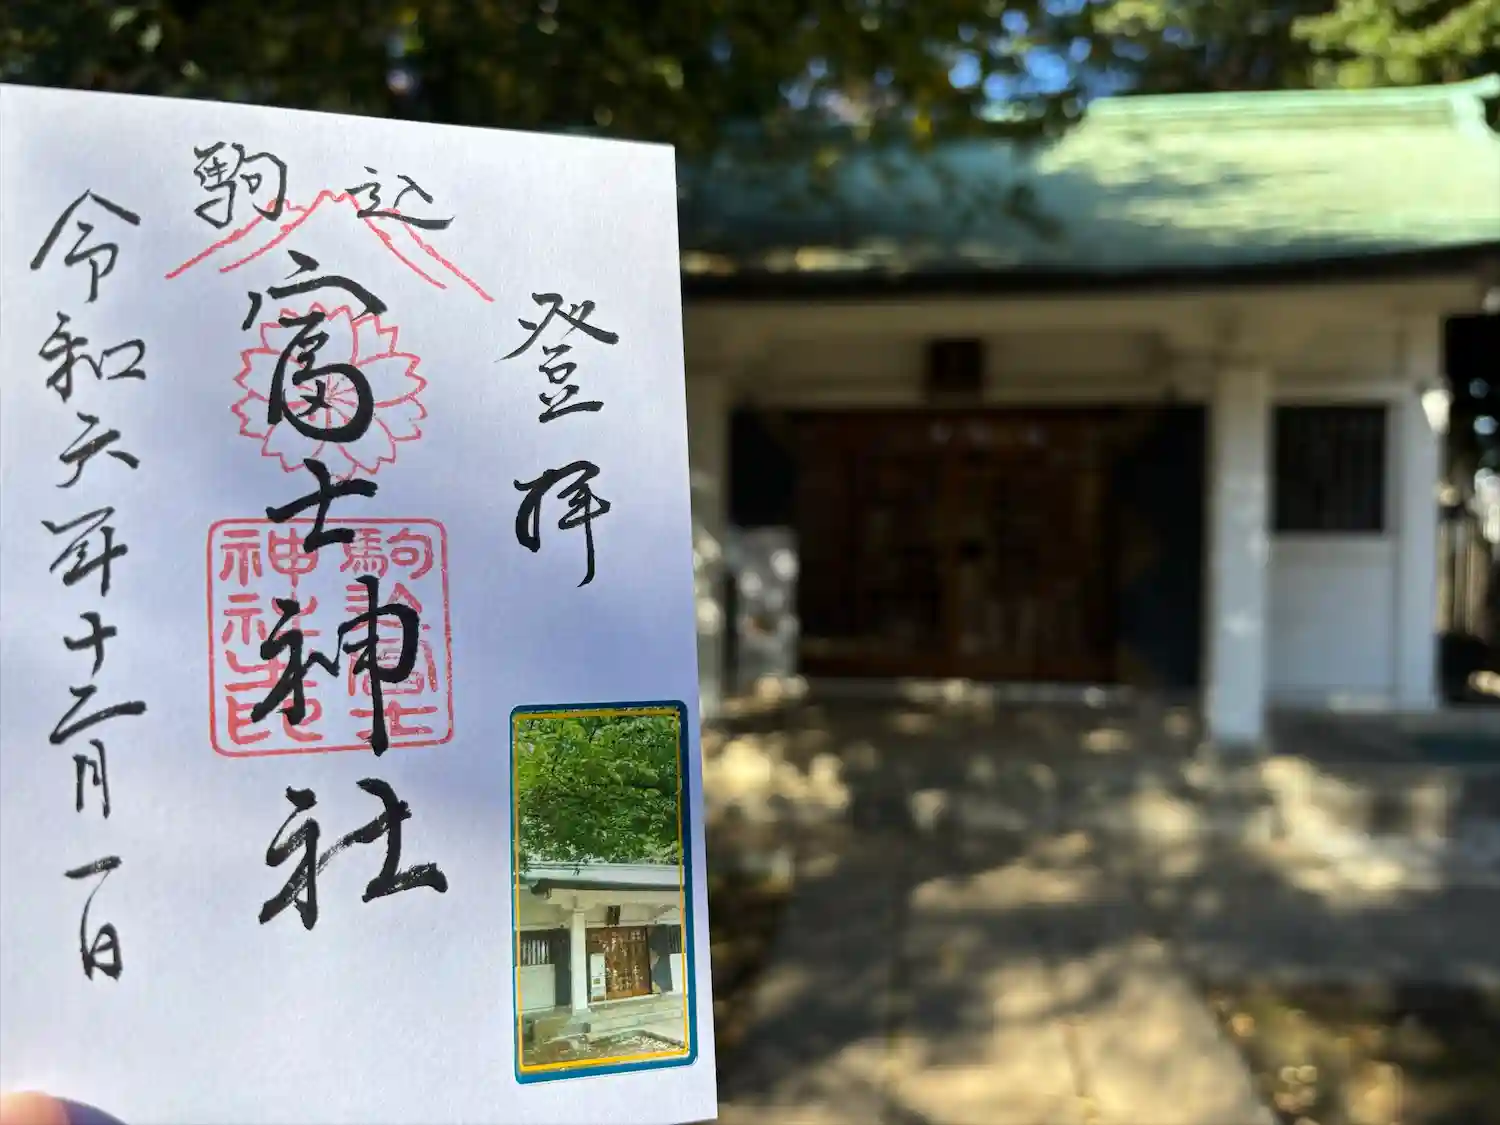 登拝
駒込
富士神社
駒込富士
神社之印
令和六年十二月一日